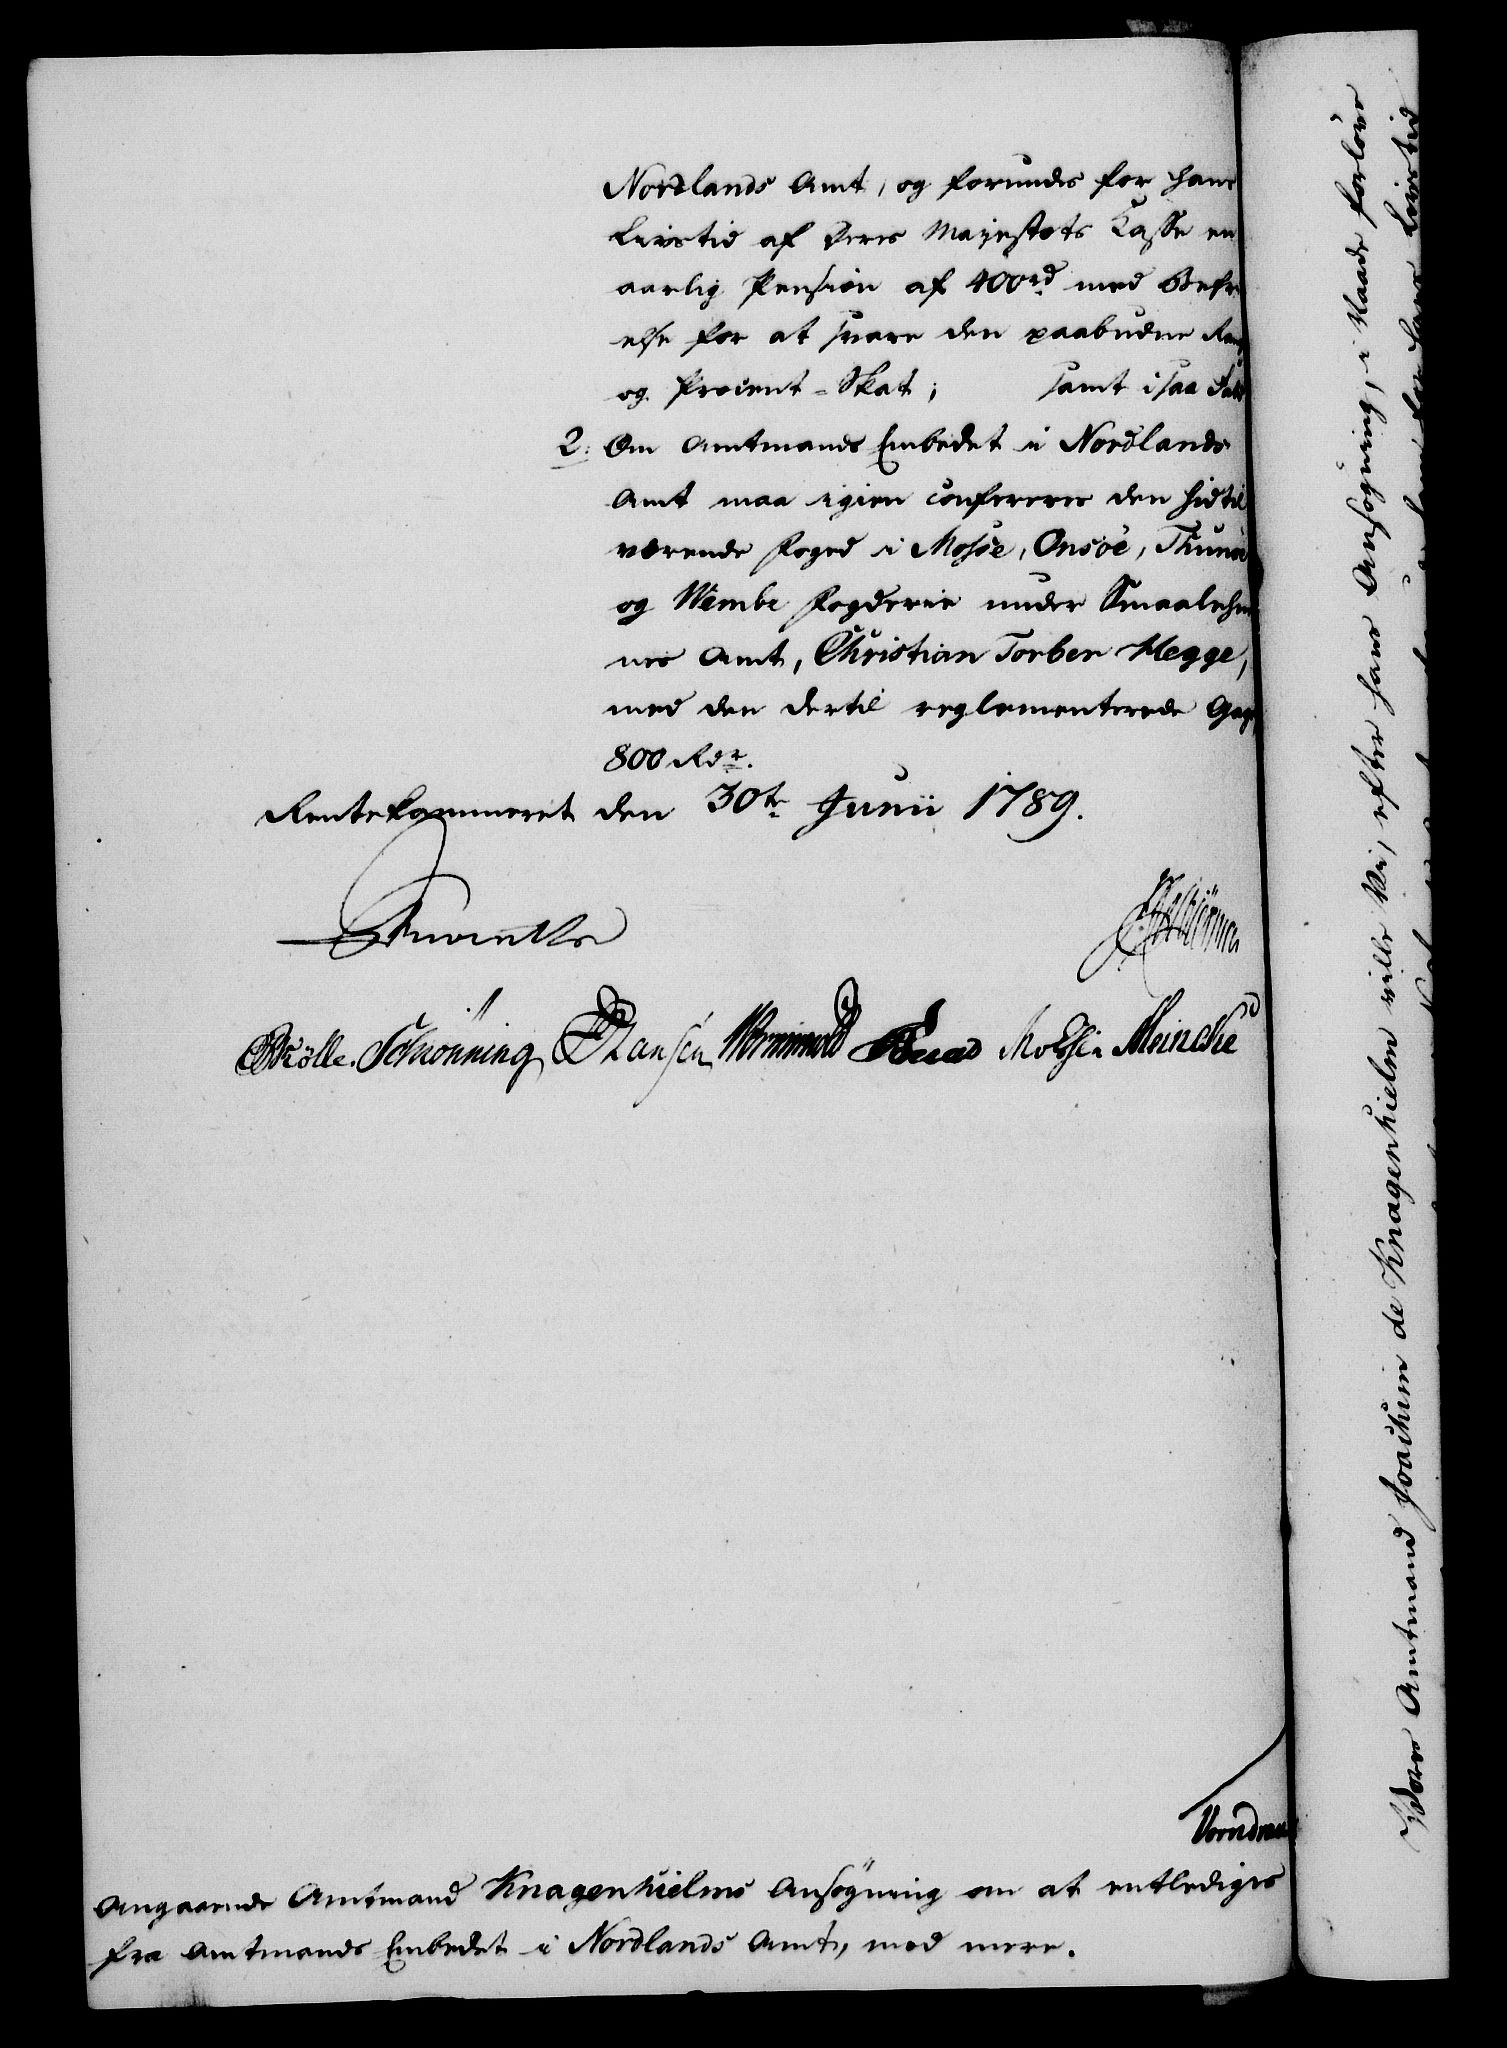 Nordlands Amt, og forundes for hans
Livstid af Deres Majestæts Casse en
aarlig Pension af 400rd med Befri
else for at svare den paabudne Rang
og Procent-Skat; samt i saa Fald
2. Om Amtmands Embedet i Nordlands
Amt maa igien confereres den hidtil
værende Foged i Mosse, Onsöe, Thunöe
og Wembe Fogderie under Smaalehne
nes Amt, Christian Torber Hegge,
med den dertil reglementerede Gage
800 Rdr.
Rentekammeret den 30te Junii 1789.
Schiönning Hansen Meincke
Angaaende Amtmand Knagenhielms Ansögning om at entlediges
fra Amtmands Embedet i Nordlands Amt, med mere.
Vores Amtmand Joachim de Knagenhielm ville Vi, efter hans Ansögning, i Naade forlove